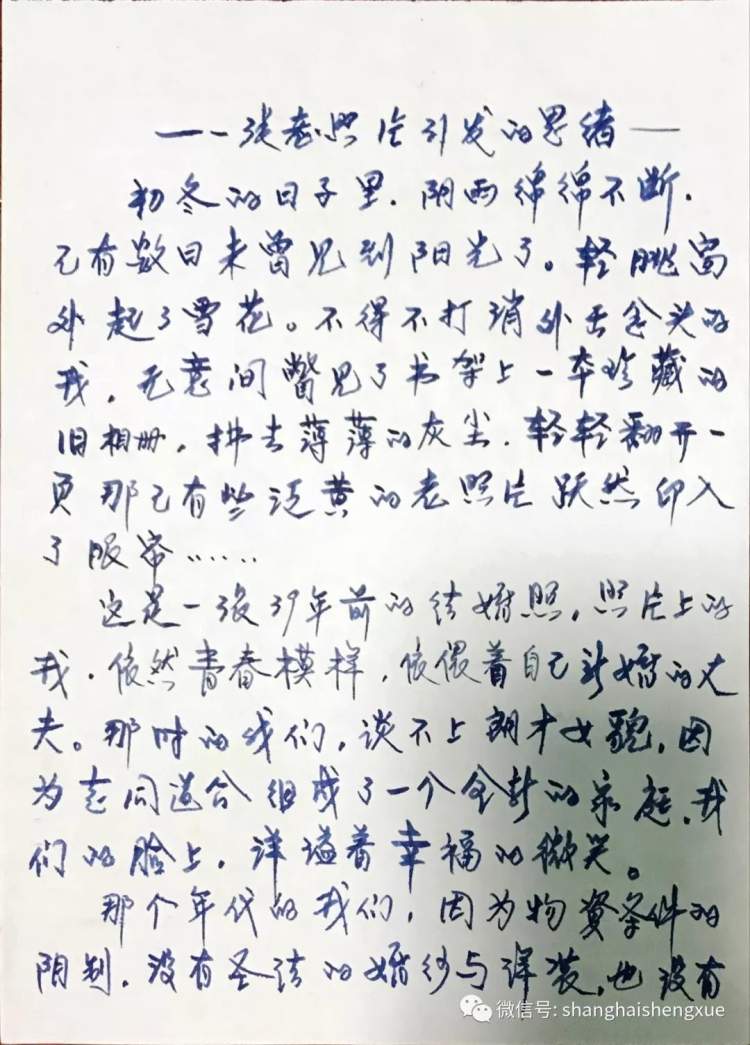 ——一张老照片引发的思绪——
初冬的日子里.阴雨绵绵不断.
已有数日未曾见到阳光了。轻眺窗
外起了雪花。不得不打消外出念头的
我,无意间瞥见了书架上一本珍藏的
旧相册,拂去薄薄的灰尘.轻轻翻开一
页那已有些泛黄的老照片跃然印入
了眼帘……
这是一张39年前的结婚照,照片上的
我.依然青春模样,依偎着自己新婚的丈
夫。那时的我们,谈不上朗才女貌,因
为志同道合组成了一个全新的家庭,我
们的脸上,洋溢着幸福的微笑。
那个年代的我们,因为物资条件的
限制,没有圣洁的婚纱与洋装,也没有
微信号: shanghaishengxue